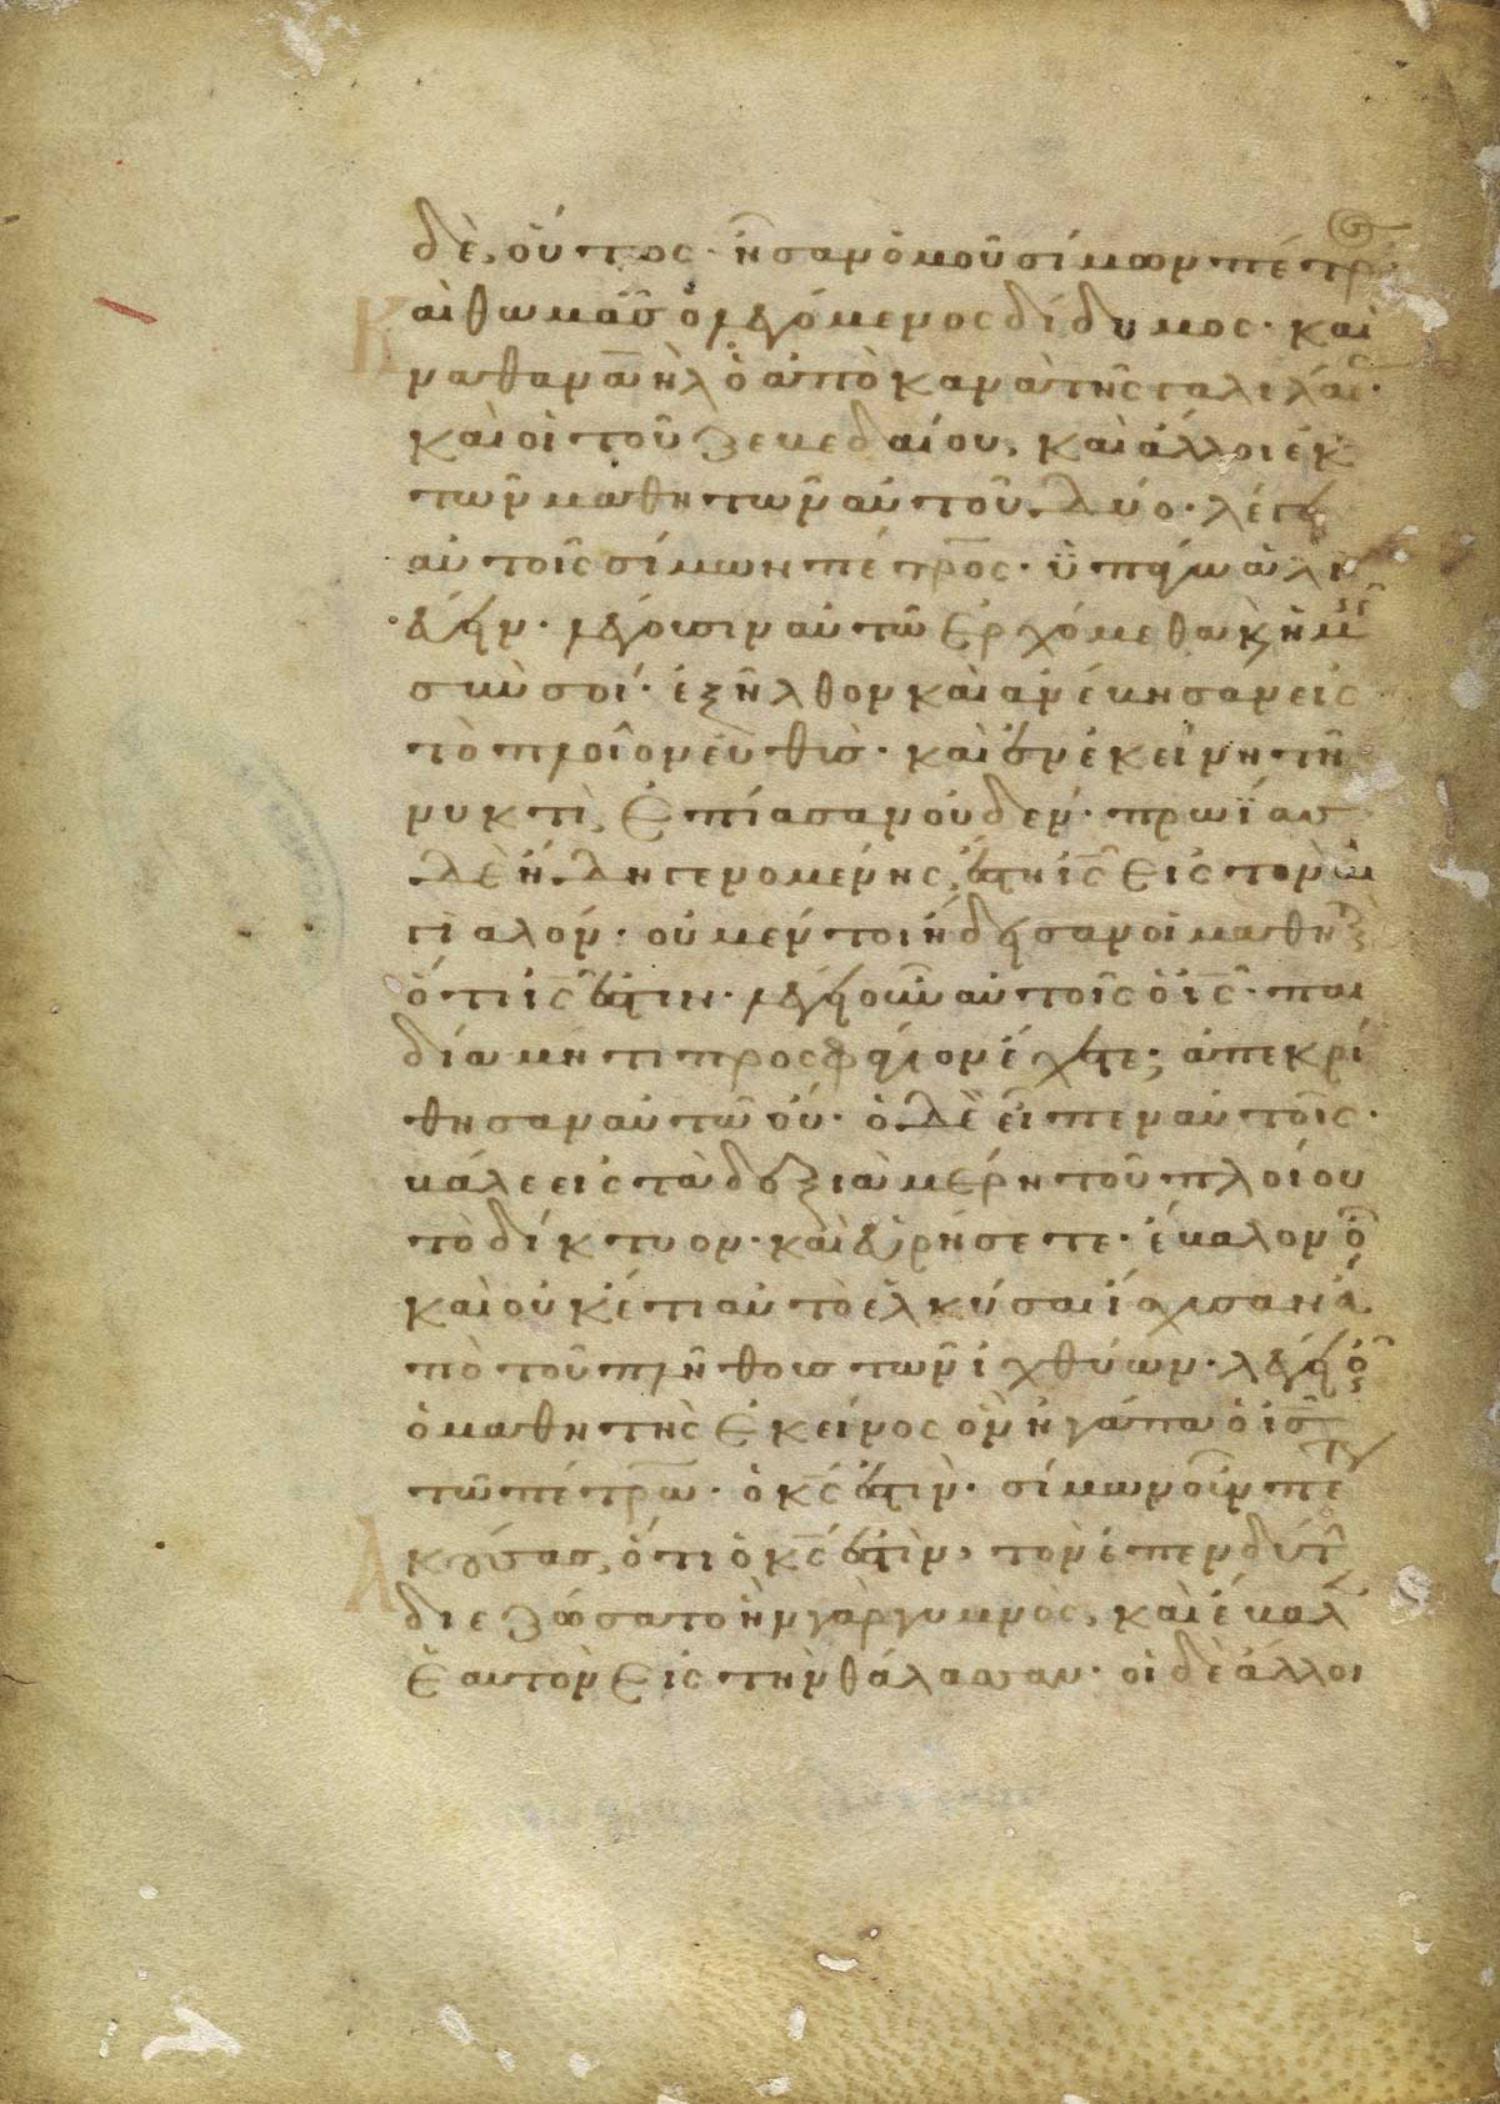 δὲ, οὕτως· ἦσαν ὁμοῦ σίμων πέτρ
Καὶ θωμᾶσ ὁ λεγόμενος δίδυμος· καὶ
ναθαναὴλ ὁ ἀπὸ κανὰ τῆς γαλιλαί·
καὶ οἱ τοῦ ζεβεδαίου, καὶ ἄλλοι ἐκ
τῶν μαθητῶν αὐτοῦ δύο· λέγει
αὐτοῖς σίμων πέτρος· ὑπάγω ἁλι
εύειν· λέγουσιν αὐτῶ ἐρχόμεθα κ ἡμεῖς
σὺν σοί· ἐξῆλθον καὶ ἀνέβησαν εἰς
τὸ πλοῖον εὐθὺσ· καὶ ἐν ἐκείνη τῆ
νυκτὶ, ἐπίασαν οὐδέν· πρωΐασ
δὲ ἤδη γενομένης, ἔστη ἰς εἰς τὸν αἰ
γιαλόν· οὐ μέντοι ἤδεισαν οἱ μαθητ
ὅτι ἰς ἐστιν· λέγει οὖν αὐτοῖς ὁ ἰς· παι
δία μή τι προσφάγιον ἔχετε; ἀπεκρί
θησαν αὐτῶ οὔ· ὁ δὲ εἶπεν αὐτοῖς·
βάλεε εἰς τὰ δεξιὰ μέρη τοῦ πλοίου
τὸ δίκτυον· καὶ εὑρήσετε· ἔβαλον οὖ
καὶ οὐκέτι αὐτὸ ἑλκύσαι ἴσχυσαν ἀ
πὸ τοῦ πλήθουσ τῶν ἰχθύων· λέγει οὖ
ὁ μαθητὴς ἐκεῖνος ὃν ἠγάπα ὁ ἰς
τῶ πέτρω· ὁ κς ἐστιν· σίμων οὖν πέτρ
Ἀκούσας, ὅτι ὁ κς ἐστὶν, τὸν ἐπενδύτ
διεζώσατο ἦν γὰρ γυμνὸς, καὶ ἔβαλ
ἑαυτὸν εἰς τὴν θάλασσαν· οἱ δὲ ἄλλοι